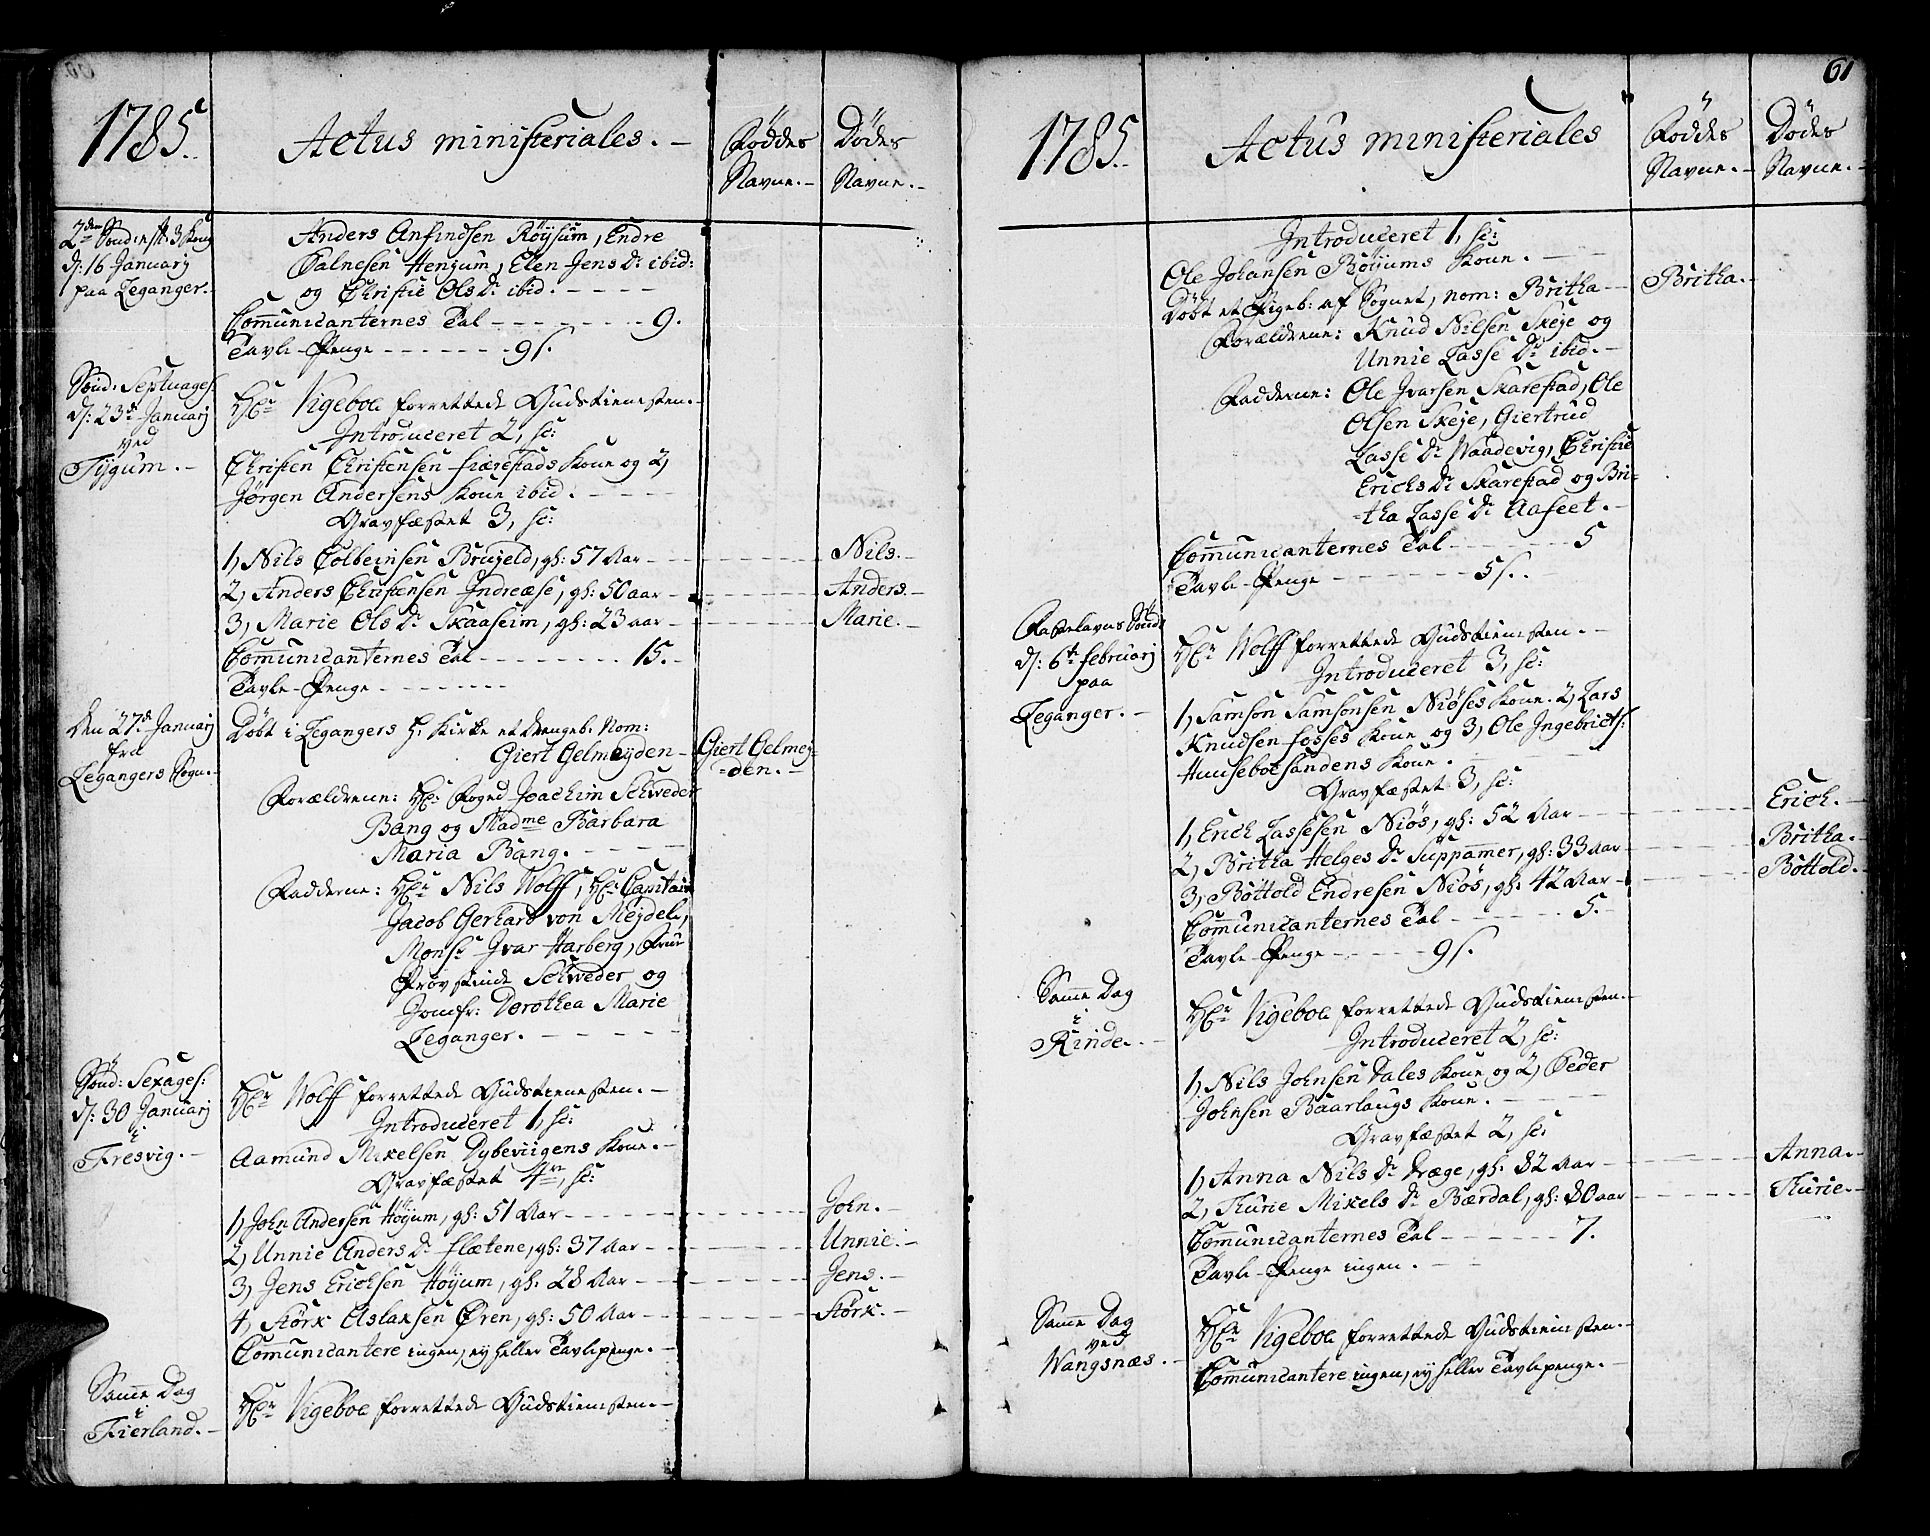 1785.
Actus ministeriales. -
Föddes
Navne. -
Dödes
Navne. -
2den Sönd. efter 3 Kong.
d: 16 Januarj
paa Leganger. -
Anders Anfindsen Röysum, Endre
Salvesen Henjum, Elen Jens Dr ibid:
og Christie Ols Dr ibid. - - - -
Comunicanternes Tal - - - - - - 9.
Tavle-Penge - - - - - - 9 s.
Sönd: Septuages:
d: 23de Januarj
ved
Tygum. -
Hr Vigeboe forrettede Gudstienesten. -
Introduceret 2, sc:
Christen Christensen Fiærestads Kone og 2,
Jörgen Andersens Kone ibid. - - - -
Gravfæstet 3, sc:
1, Nils Colbeinsen Brujeld, gl: 57 Aar - - - - Nils. -
2, Anders Christensen Indreæse, gl: 50 aar - - - - Anders. -
3, Marie Ols Dr Skaaseim, gl: 23 aar - - - - Marie. -
Comunicanternes Tal - - - - - - - 15. -
Tavle-Penge - - - - - - -
Den 27de Januarj
fra
Legangers Sogn. -
Döbt i Legangers H. Kirke et drengeb: Nom:
Giert Gelmeyden - Giert Gelmey=
=den. -
Forældrene: Hr Foged Joachim Schweder
Bang og Madme Barbara
Maria Bang. - - - - -
Fadderne: Hr Nils Wolff, Hr Capitain
Jacob Gerhard von Meydell,
Monsr Ivar Harberg, Frue
Provstinde Schweder og
Jomfr: Dorothea Marie
Leganger. - - - - - -
Sönd: Sexages:
d: 30 Januarj
i
Fresvig. -
Hr Wolff forrettede Gudstienesten. -
Introduceret 1, sc:
Aamund Mikelsen Dybeviigens Kone. -
Gravfæstet 4re, sc:
1, John Andersen Höyum, gl: 51 Aar - - - - John. -
2, Unnie Anders Dr Flætene, gl: 37 Aar - - - - Unnie. -
3, Jens Erichsen Höyum, gl: 28 Aar - - - - Jens. -
4, Störk Aslaksen Øren, gl: 50 Aar - - - - Störk. -
Comunicantere ingen, ey heller Tavlepenge. -
Same Dag
i
Fierland. -
Hr Vigeboe forrettede Gudstienesten. -
61
1785. -
Actus ministeriales
Föddes
Navne. -
Dödes
Navne. -
Introduceret 1, sc:
Ole Johansen Röyums Kone. - - -
Döbt et Pigeb: af Sognet, nom: Britha - - Britha. -
Forældrene: Knud Nilsen Skeje og
Unnie Lasse Dr ibid. -
Fadderne: Ole Ivarsen Skarestad, Ole
Olsen Skeje, Giertrud
Lasse Dr Waadevig, Christie
Erichs Dr Skarestad og Bri=
=tha Lasse Dr Aafeet. -
Comunicanternes Tal - - - - - - 5
Tavle-Penge - - - - - - 5 s. -
Fastelavns Sönd:
d: 6te Februarj
paa
Leganger. -
Hr Wolff forrettede Gudstienesten. -
Introduceret 3, sc:
1, Samson Samsonsen Niöses Kone. 2, Lars
Knudsen Fosses Kone og 3, Ole Ingebricts:
Huuseboesandens Kone. - - -
Gravfæstet 3, sc:
1, Erich Lassesen Niös, gl: 52 Aar - - - - Erich. -
2, Britha Helges Dr Suppamer, gl: 33 Aar - - - - Britha. -
3, Böttold Endresen Niös, gl: 42 Aar - - - - Böttold. -
Comunicanternes Tal - - - - - - 5. -
Tavle-Penge - - - - - 9 s.
Same Dag
i
Rinde. -
Hr Vigeboe forrettede Gudstienesten. -
Introduceret 2, sc:
1, Nils Johnsen Dales Kone og 2, Peder
Johnsen Baarlaugs Kone. - - - -
Gravfæstet 2, sc:
1, Anna Nils Dr Dræge, gl: 82 Aar - - - - Anna. -
2, Thurie Mikels Dr Bærdal, gl: 80 aar - - - - Thurie. -
Comunicanternes Tal - - - - - - 7.
Tavle-Penge ingen. - - -
Same Dag
ved
Wangsnæs. -
Hr Vigeboe forrettede Gudstienesten. -
Comunicantere ingen, ey heller Tavlepenge. -